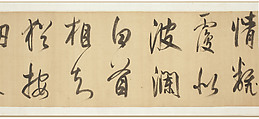 情翻
覆似
波瀾
白首
相知
猶按